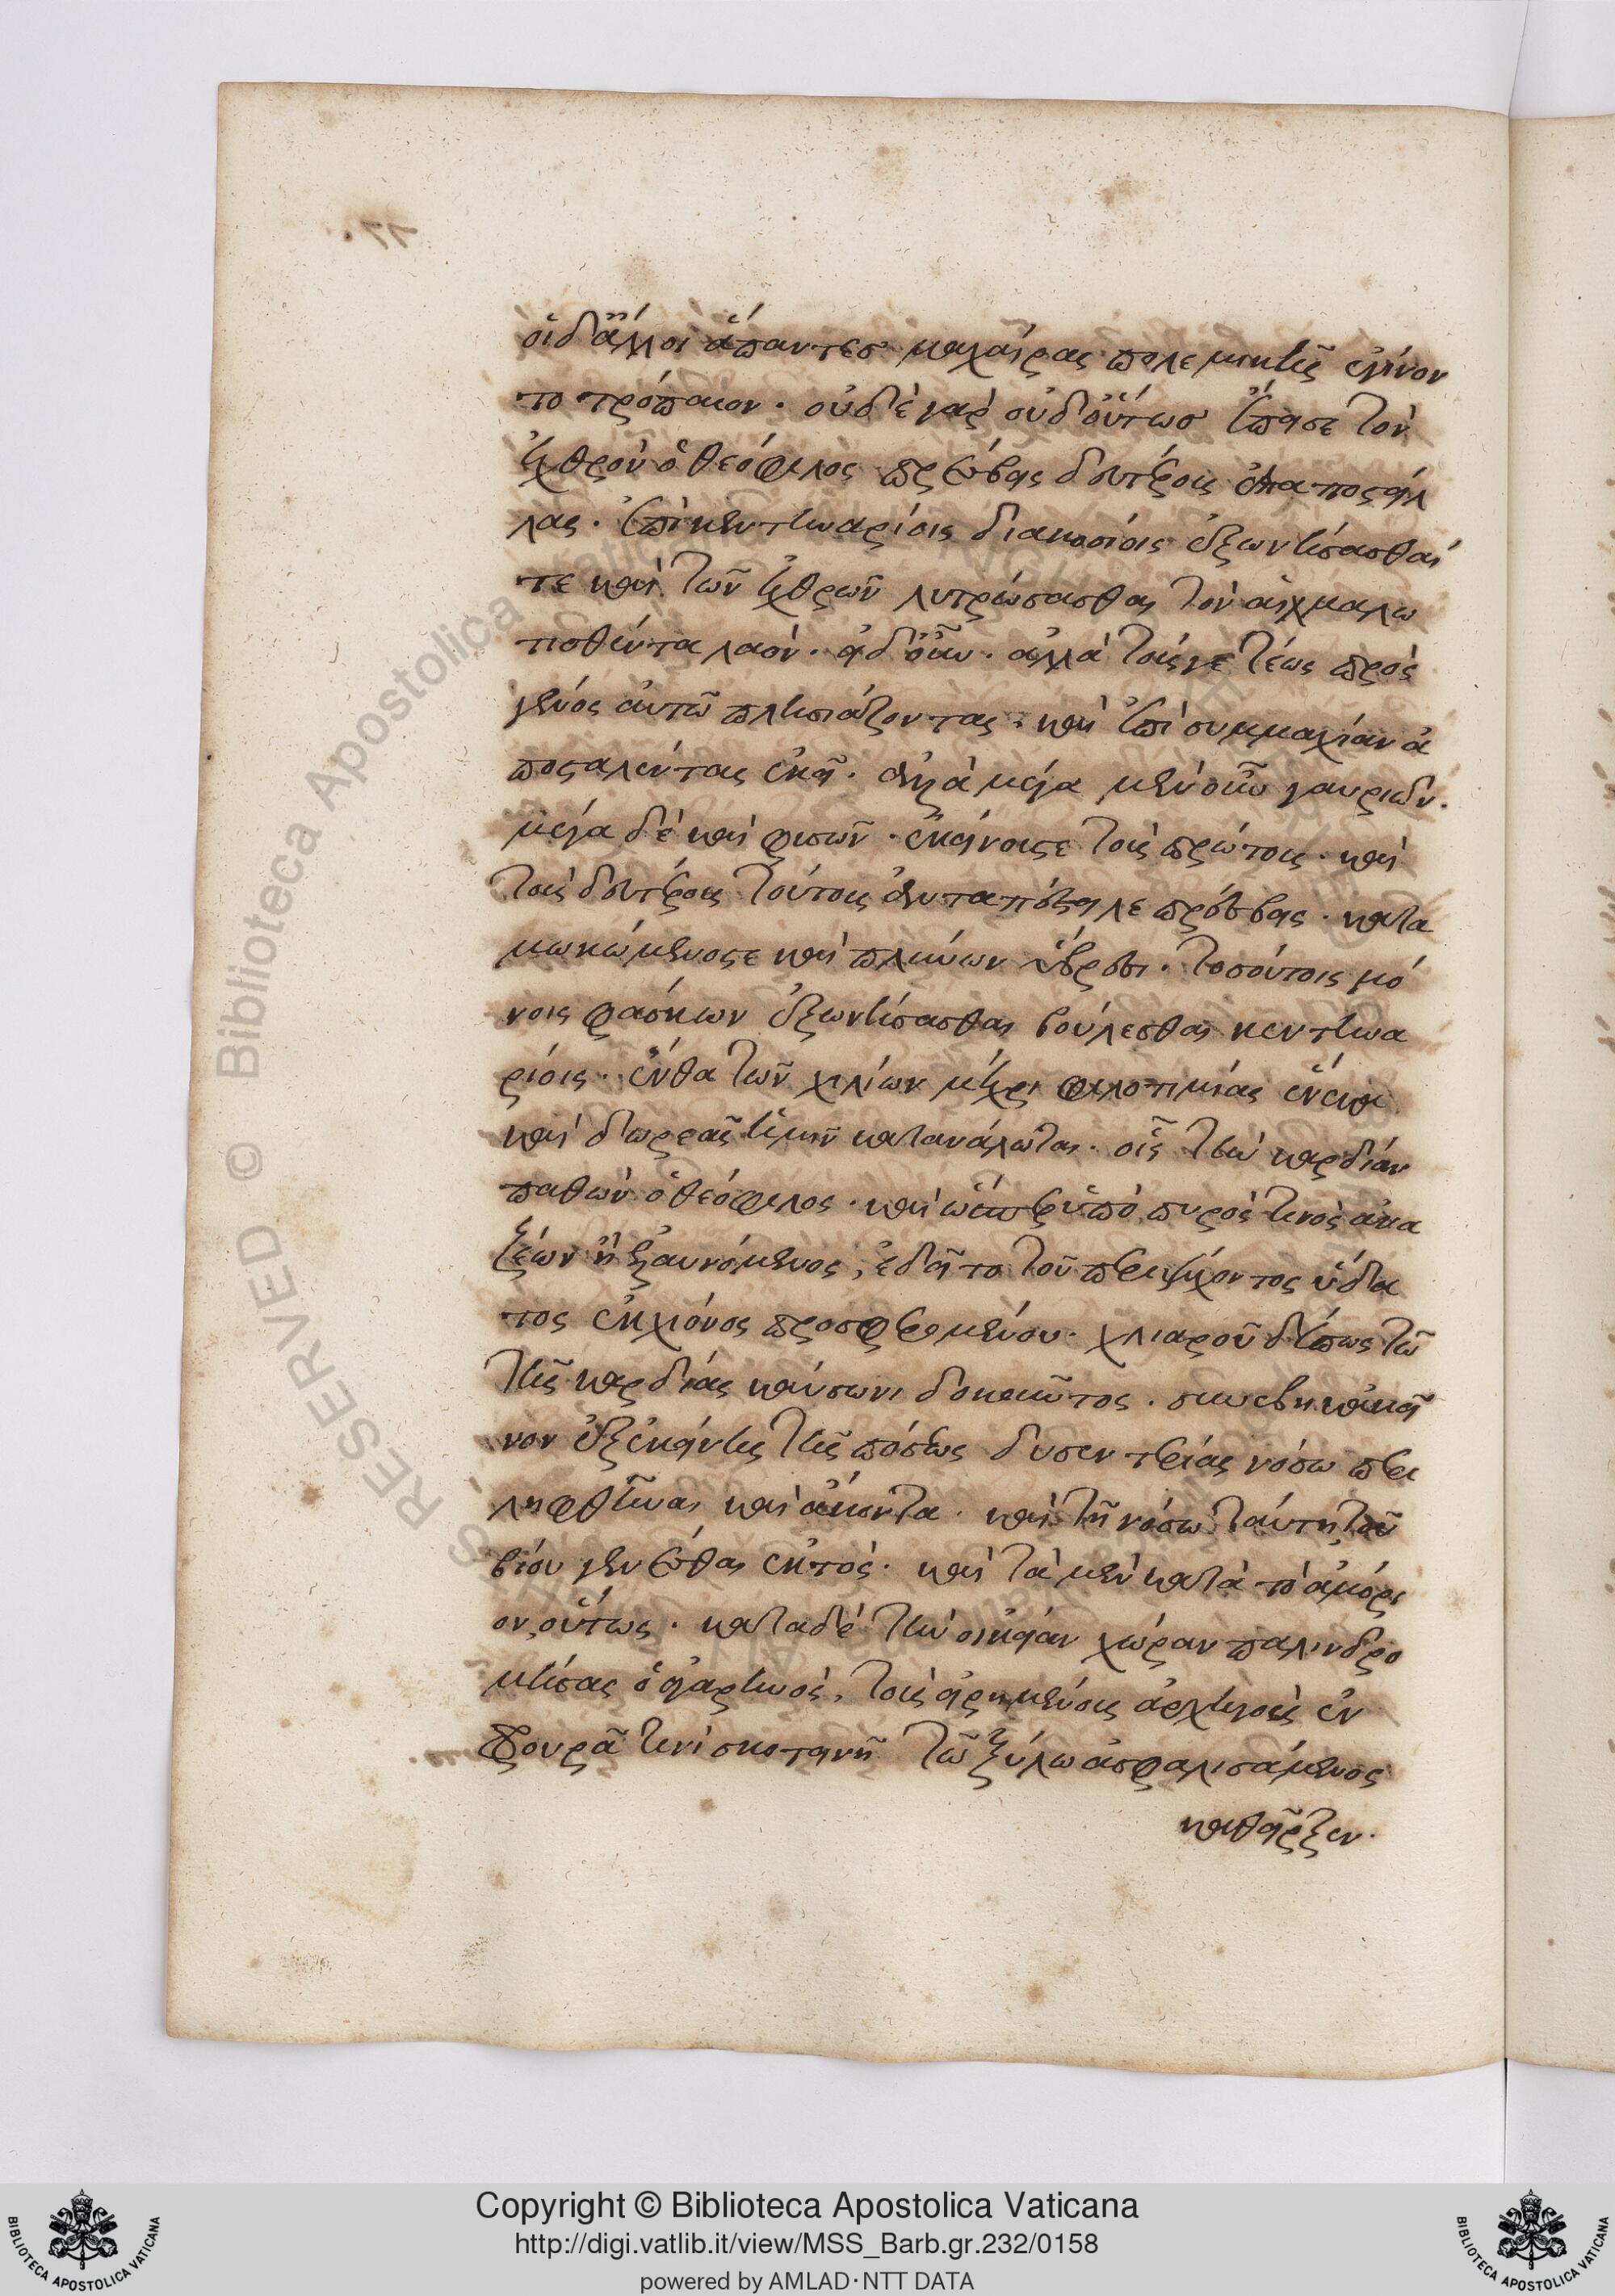 οἱ δ' ἄλλοι ἅπαντες μαχαίρας πολεμικῆς ἐγίνον
το τρόπαιον. οὐδὲ γὰρ οὐδ' οὕτως ἔπεισε τὸν
ἐχθρὸν ὁ θεόφιλος πρέσβεις δευτέροις ἐπαποστείλ
λας. ἐπὶ κεντηναρίοις διακοσίοις ἐξωνήσασθαί
τε καὶ τῶν ἐχθρῶν λυτρώσασθαι τὸν αἰχμαλω
τισθέντα λαόν. εἰ δ' οὖν. ἀλλὰ τούς γε τέως πρὸς
γένος αὐτῷ πλησιάζοντας, καὶ ἐπὶ συμμαχίαν ἀ
ποσταλέντας ἐκεῖ. ἀλλὰ μέγα μὲν οὖν γαυριῶν.
μέγα δὲ καὶ φυσῶν. ἐκείνοις τε τοῖς πρώτοις. καὶ
τοῖς δευτέροις τούτοις ἀνταπέστειλε πρέσβεις. κατα
μωκώμενός τε καὶ πλύνων ὕβρεσι. τοσούτοις μό
νοις φάσκων ἐξωνήσασθαι βούλεσθαι κεντηνα
ρίοις. ἔνθα τῶν χιλίων μέχρι φιλοτιμίας ἕνεκα
καὶ δωρεᾶς ἡμῖν κατανάλωται. οἷς τὴν καρδίαν
παθὼν ὁ θεόφιλος. καὶ ὥσπερ ὑπὸ πυρός τινος ἀνα
ζέων ἢ ξαινόμενος, ἐδεῖτο τοῦ περιψύχοντος ὕδα
τος ἐκ χιόνος προσφερομένου. χλιαροῦ δέ πως τῷ
τῆς καρδίας καύσωνι δοκοῦντος. συνέβη κἀκεῖ
νον ἐξ ἐκείνης τῆς πόσεως δυσεντερίας νόσῳ περι
ληφθῆναι καὶ ἄκοντα. καὶ τῇ νόσῳ ταύτῃ τοῦ
βίου γενέσθαι ἐκτός. καὶ τὰ μὲν κατὰ τὸ ἀμόρι
ον, οὕτως. κατὰ δὲ τὴν οἰκείαν χώραν παλινδρο
μήσας ὁ ἀγαρηνός, τοὺς εἰρημένους ἀρχηγοὺς ἐν
φρουρᾷ τινὶ σκοτεινῇ τῷ ξύλῳ ἀσφαλισάμενος
καθεῖρξεν.
Copyright © Biblioteca Apostolica Vaticana
http://digi.vatlib.it/view/MSS_Barb.gr.232/0158
powered by AMLAD·NTT DATA